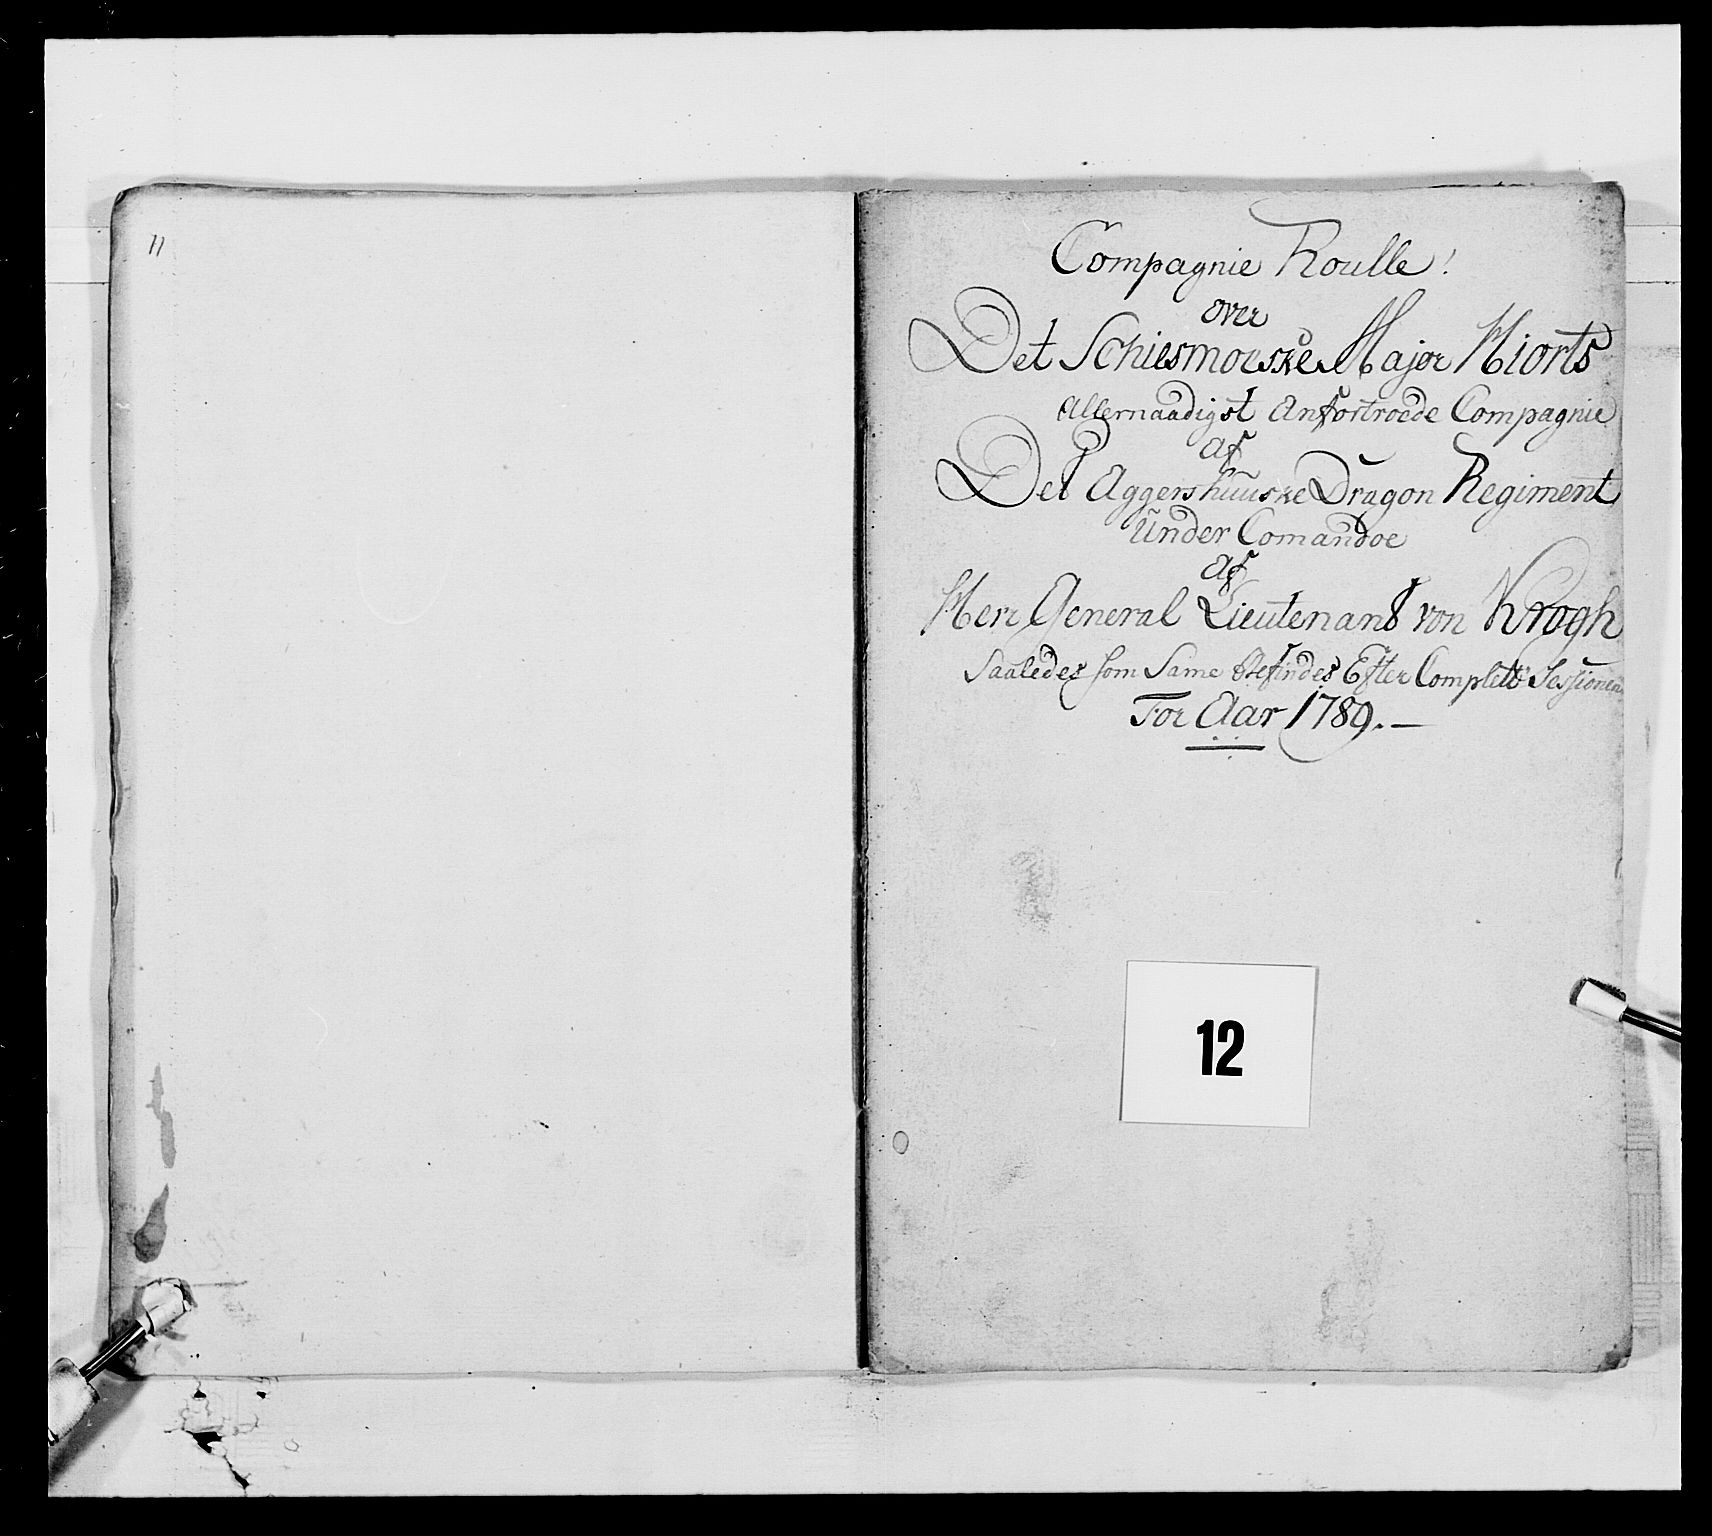 11
Compagnie Roulle!
over
Det Schiesmoeske Major Hiorts
Allernaadigst Anfortroede Compagnie
Af
Det Aggershuuske Dragon Regiment
Under Comandoe
Af
Herr General Lieutenant von Krogh
Saaledes som Same Befindes Efter Complett Sessionen
For Aar 1789.—
12